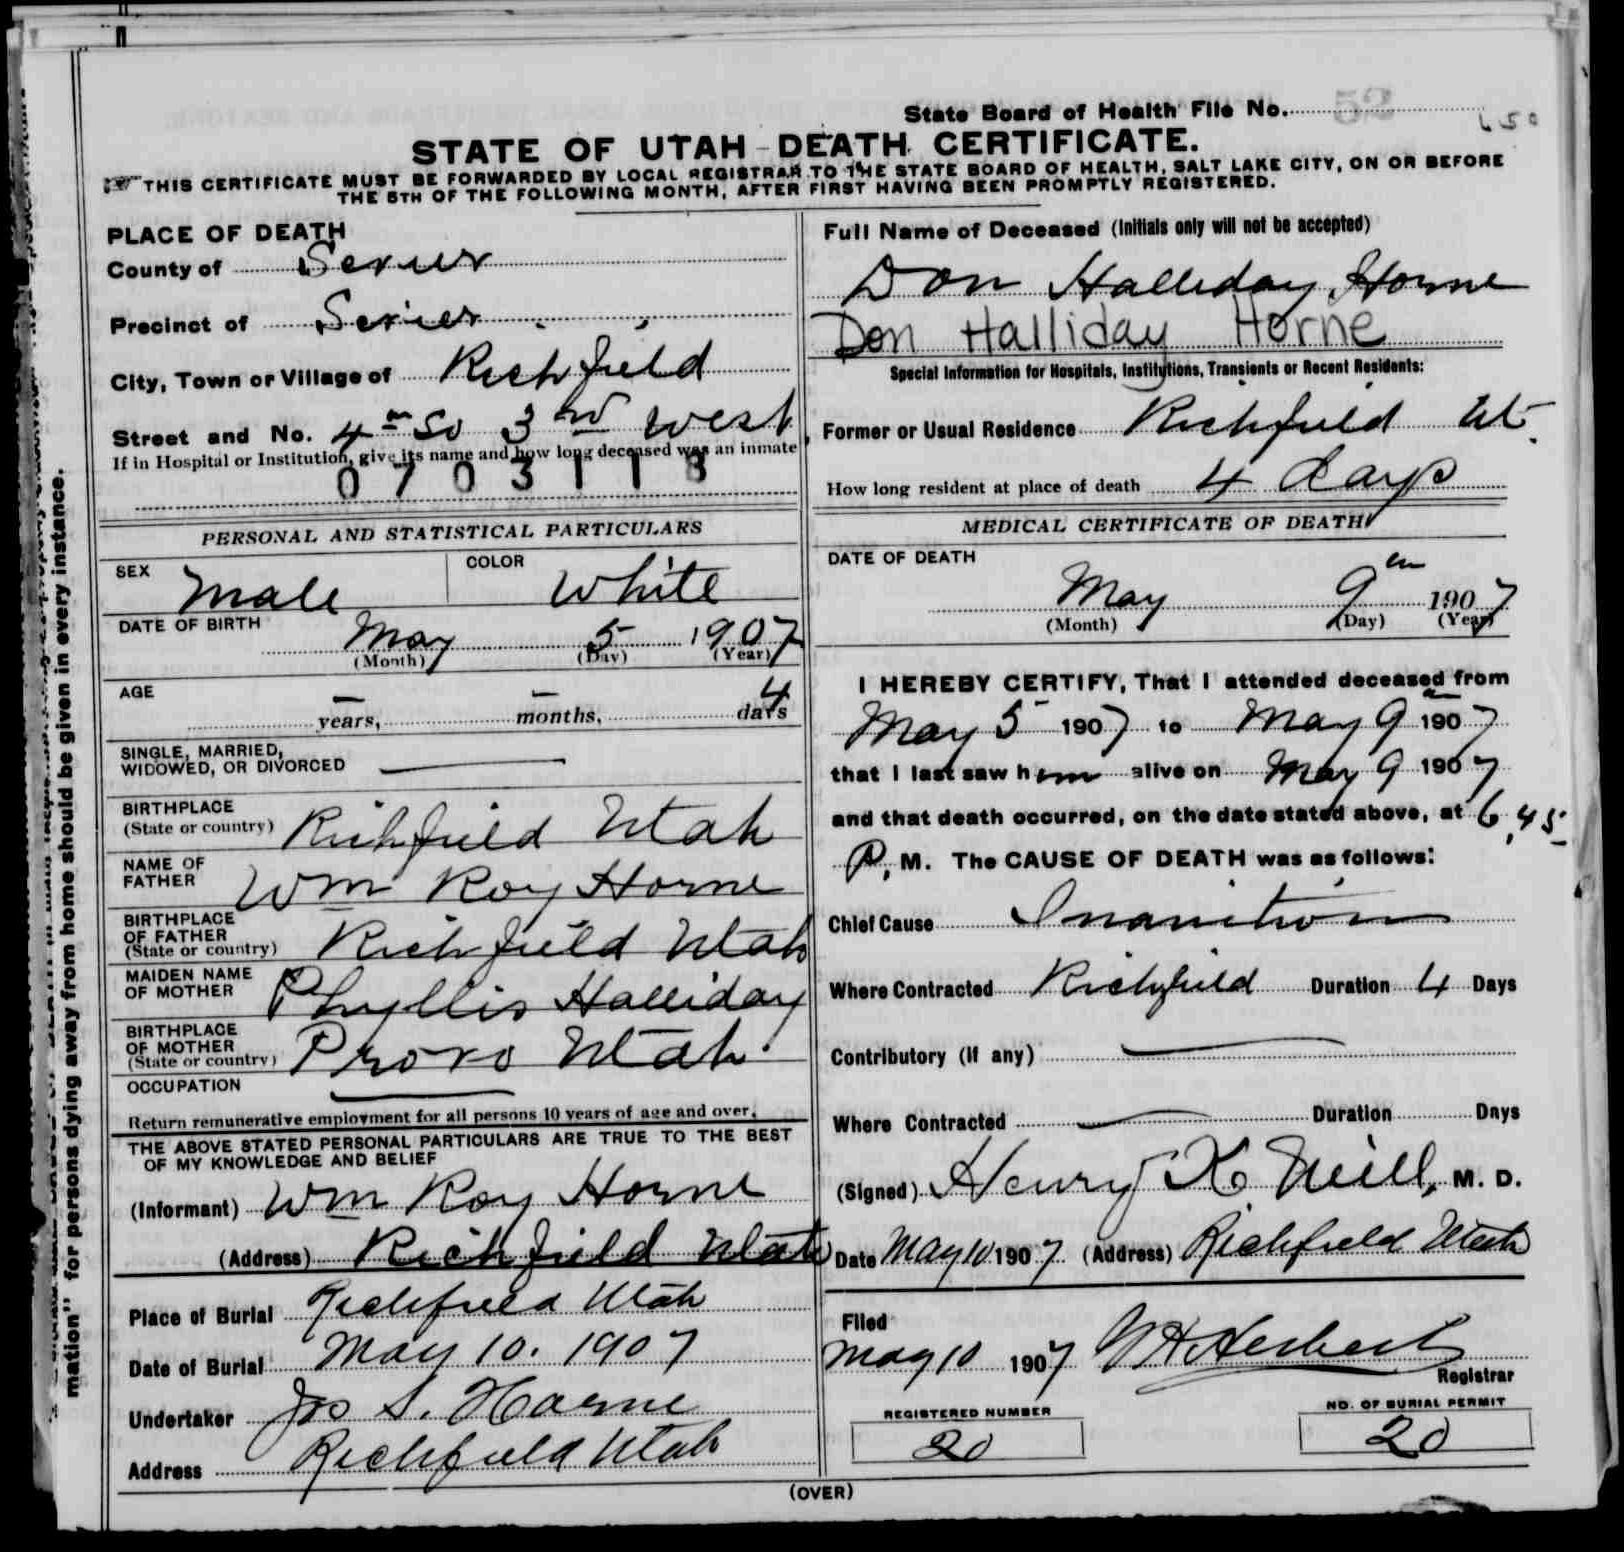 State Board of Health File No. 52
STATE OF UTAH - DEATH CERTIFICATE.
THIS CERTIFICATE MUST BE FORWARDED BY LOCAL REGISTRAR TO THE STATE BOARD OF HEALTH, SALT LAKE CITY, ON OR BEFORE
THE 5TH OF THE FOLLOWING MONTH, AFTER FIRST HAVING BEEN PROMPTLY REGISTERED.
PLACE OF DEATH
County of Sevier
Precinct of Sevier
City, Town or Village of Richfield
Street and No. 4th So 3rd West
If in Hospital or Institution, give its name and how long deceased was an inmate
0703118
PERSONAL AND STATISTICAL PARTICULARS
SEX Male COLOR White
DATE OF BIRTH May 5 1907
(Month) (Day) (Year)
AGE
— years, — months, 4 days
SINGLE, MARRIED,
WIDOWED, OR DIVORCED —
BIRTHPLACE
(State or country) Richfield Utah
NAME OF
FATHER Wm Roy Horne
BIRTHPLACE
OF FATHER
(State or country) Richfield Utah
MAIDEN NAME
OF MOTHER Phyllis Halliday
BIRTHPLACE
OF MOTHER
(State or country) Provo Utah
OCCUPATION —
Return remunerative employment for all persons 10 years of age and over.
THE ABOVE STATED PERSONAL PARTICULARS ARE TRUE TO THE BEST
OF MY KNOWLEDGE AND BELIEF
(Informant) Wm Roy Horne
(Address) Richfield Utah
Place of Burial Richfield Utah
Date of Burial May 10. 1907
Undertaker Jos S. Horne
Address Richfield Utah
Full Name of Deceased (Initials only will not be accepted)
Don Halliday Horne
Don Halliday Horne
Special Information for Hospitals, Institutions, Transients or Recent Residents:
Former or Usual Residence Richfield Ut.
How long resident at place of death 4 days
MEDICAL CERTIFICATE OF DEATH
DATE OF DEATH
May 9th 1907
(Month) (Day) (Year)
I HEREBY CERTIFY, That I attended deceased from
May 5 1907 to May 9 1907
that I last saw him alive on May 9 1907
and that death occurred, on the date stated above, at 6,45
P, M. The CAUSE OF DEATH was as follows:
Chief Cause Inanition
Where Contracted Richfield Duration 4 Days
Contributory (if any) —
Where Contracted — Duration Days
(Signed) Henry K Neill, M. D.
Date May 10 1907 (Address) Richfield Utah
Filed
May 10 1907
Registrar
REGISTERED NUMBER
20
NO. OF BURIAL PERMIT
20
(OVER)
mation" for persons dying away from home should be given in every instance.